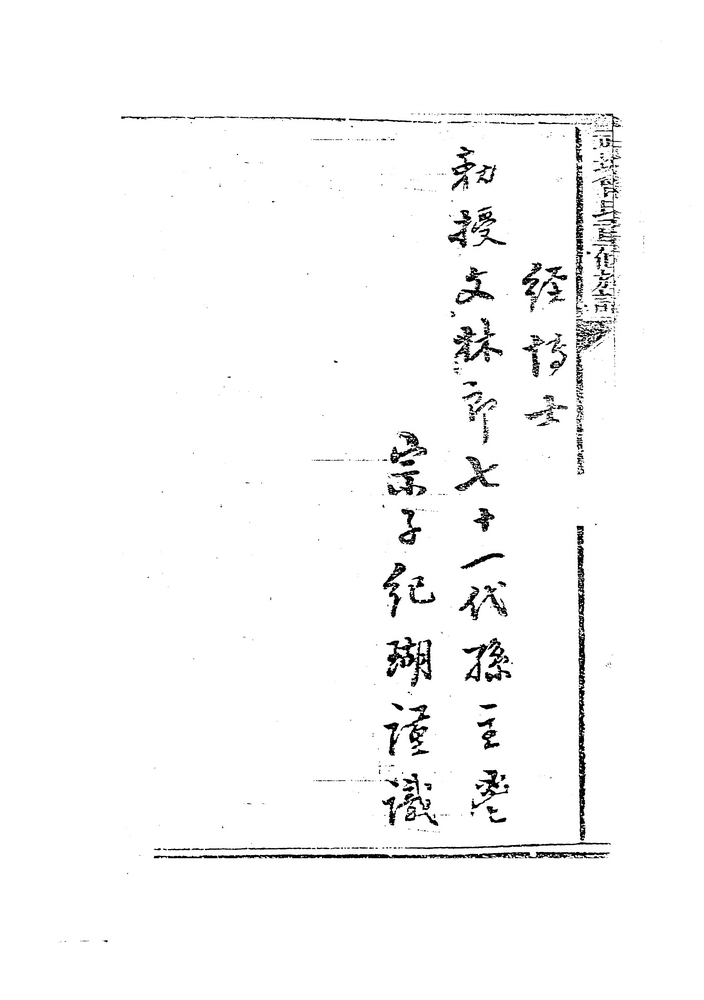 経博士
勅授文林郎七十一代孫主鬯
宗子紀瑚謹識